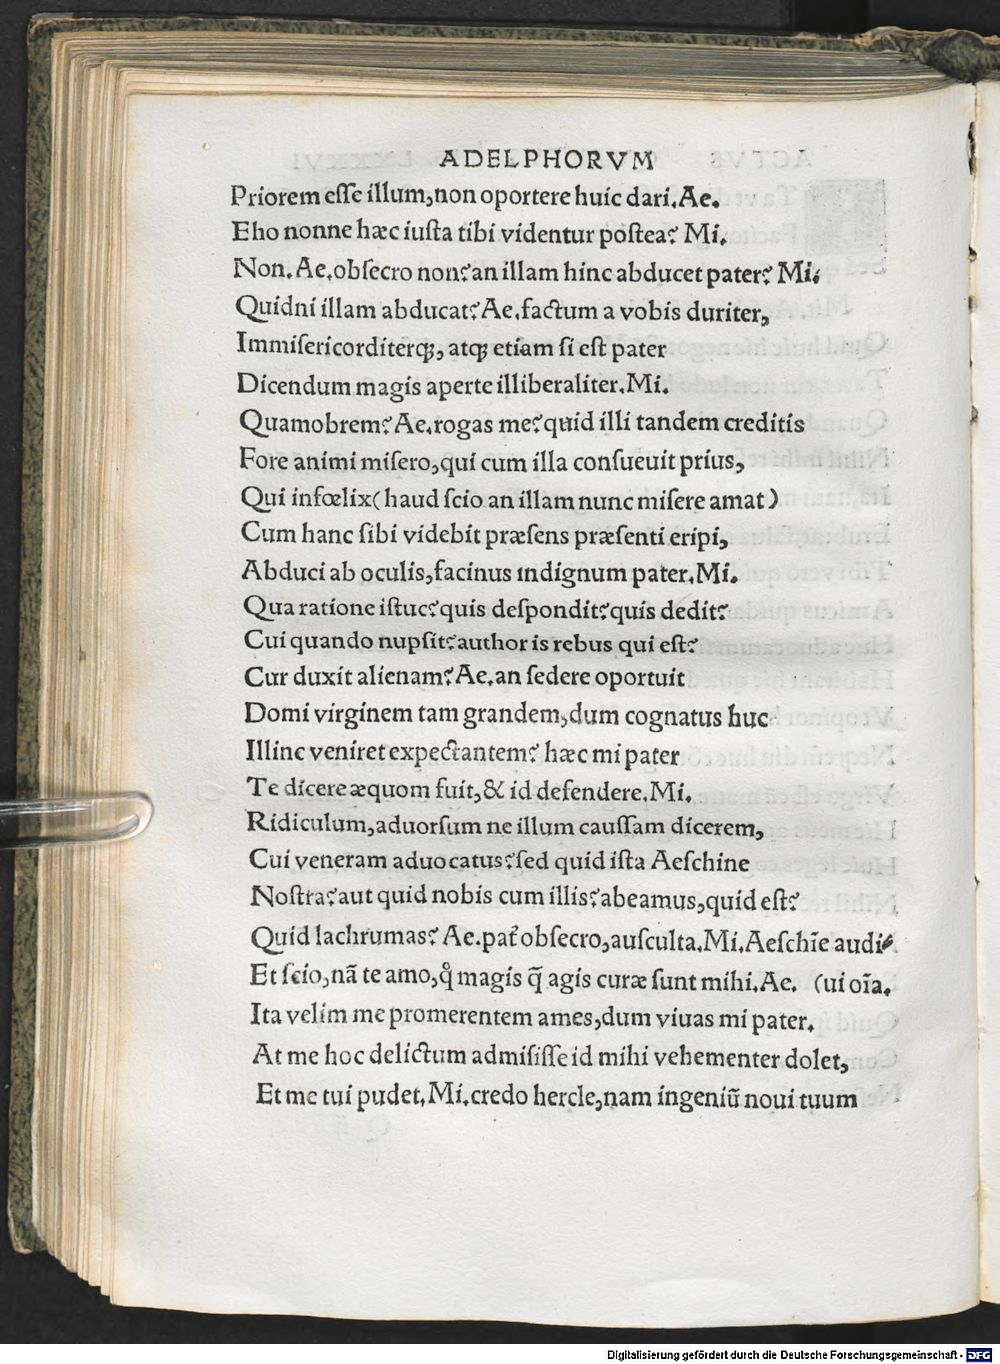 ADELPHORVM
Priorem eſſe illum, non oportere huic dari. Ae.
Eho nonne hæc iuſta tibi videntur poſtea? Mi.
Non. Ae. obſecro non? an illam hinc abducet pater? Mi.
Quidni illam abducat? Ae. factum a vobis duriter,
Immiſericorditerq;, atq; etiam ſi eſt pater
Dicendum magis aperte illiberaliter. Mi.
Quamobrem? Ae. rogas me? quid illi tandem creditis
Fore animi miſero, qui cum illa conſueuit prius,
Qui infœlix (haud ſcio an illam nunc miſere amat)
Cum hanc ſibi videbit præſens præſenti eripi,
Abduci ab oculis, facinus indignum pater. Mi.
Qua ratione iſtuc? quis deſpondit? quis dedit?
Cui quando nupſit? author is rebus qui eſt?
Cur duxit alienam? Ae. an ſedere oportuit
Domi virginem tam grandem, dum cognatus huc
Illinc veniret expectantem? hæc mi pater
Te dicere æquom fuit, & id defendere. Mi.
Ridiculum, aduorſum ne illum cauſſam dicerem,
Cui veneram aduocatus? ſed quid iſta Aeſchine
Noſtra? aut quid nobis cum illis? abeamus, quid eſt?
Quid lachrumas? Ae. pat̃ obſecro, auſculta. Mi. Aeſchīe audi
Et ſcio, nã te amo, q̊ magis q̃ agis curæ ſunt mihi. Ae. (ui oĩa.
Ita velim me promerentem ames, dum viuas mi pater.
At me hoc delictum admiſiſſe id mihi vehementer dolet,
Et me tui pudet. Mi. credo hercle, nam ingeniũ noui tuum
Digitalisierung gefördert durch die Deutsche Forschungsgemeinschaft - DFG